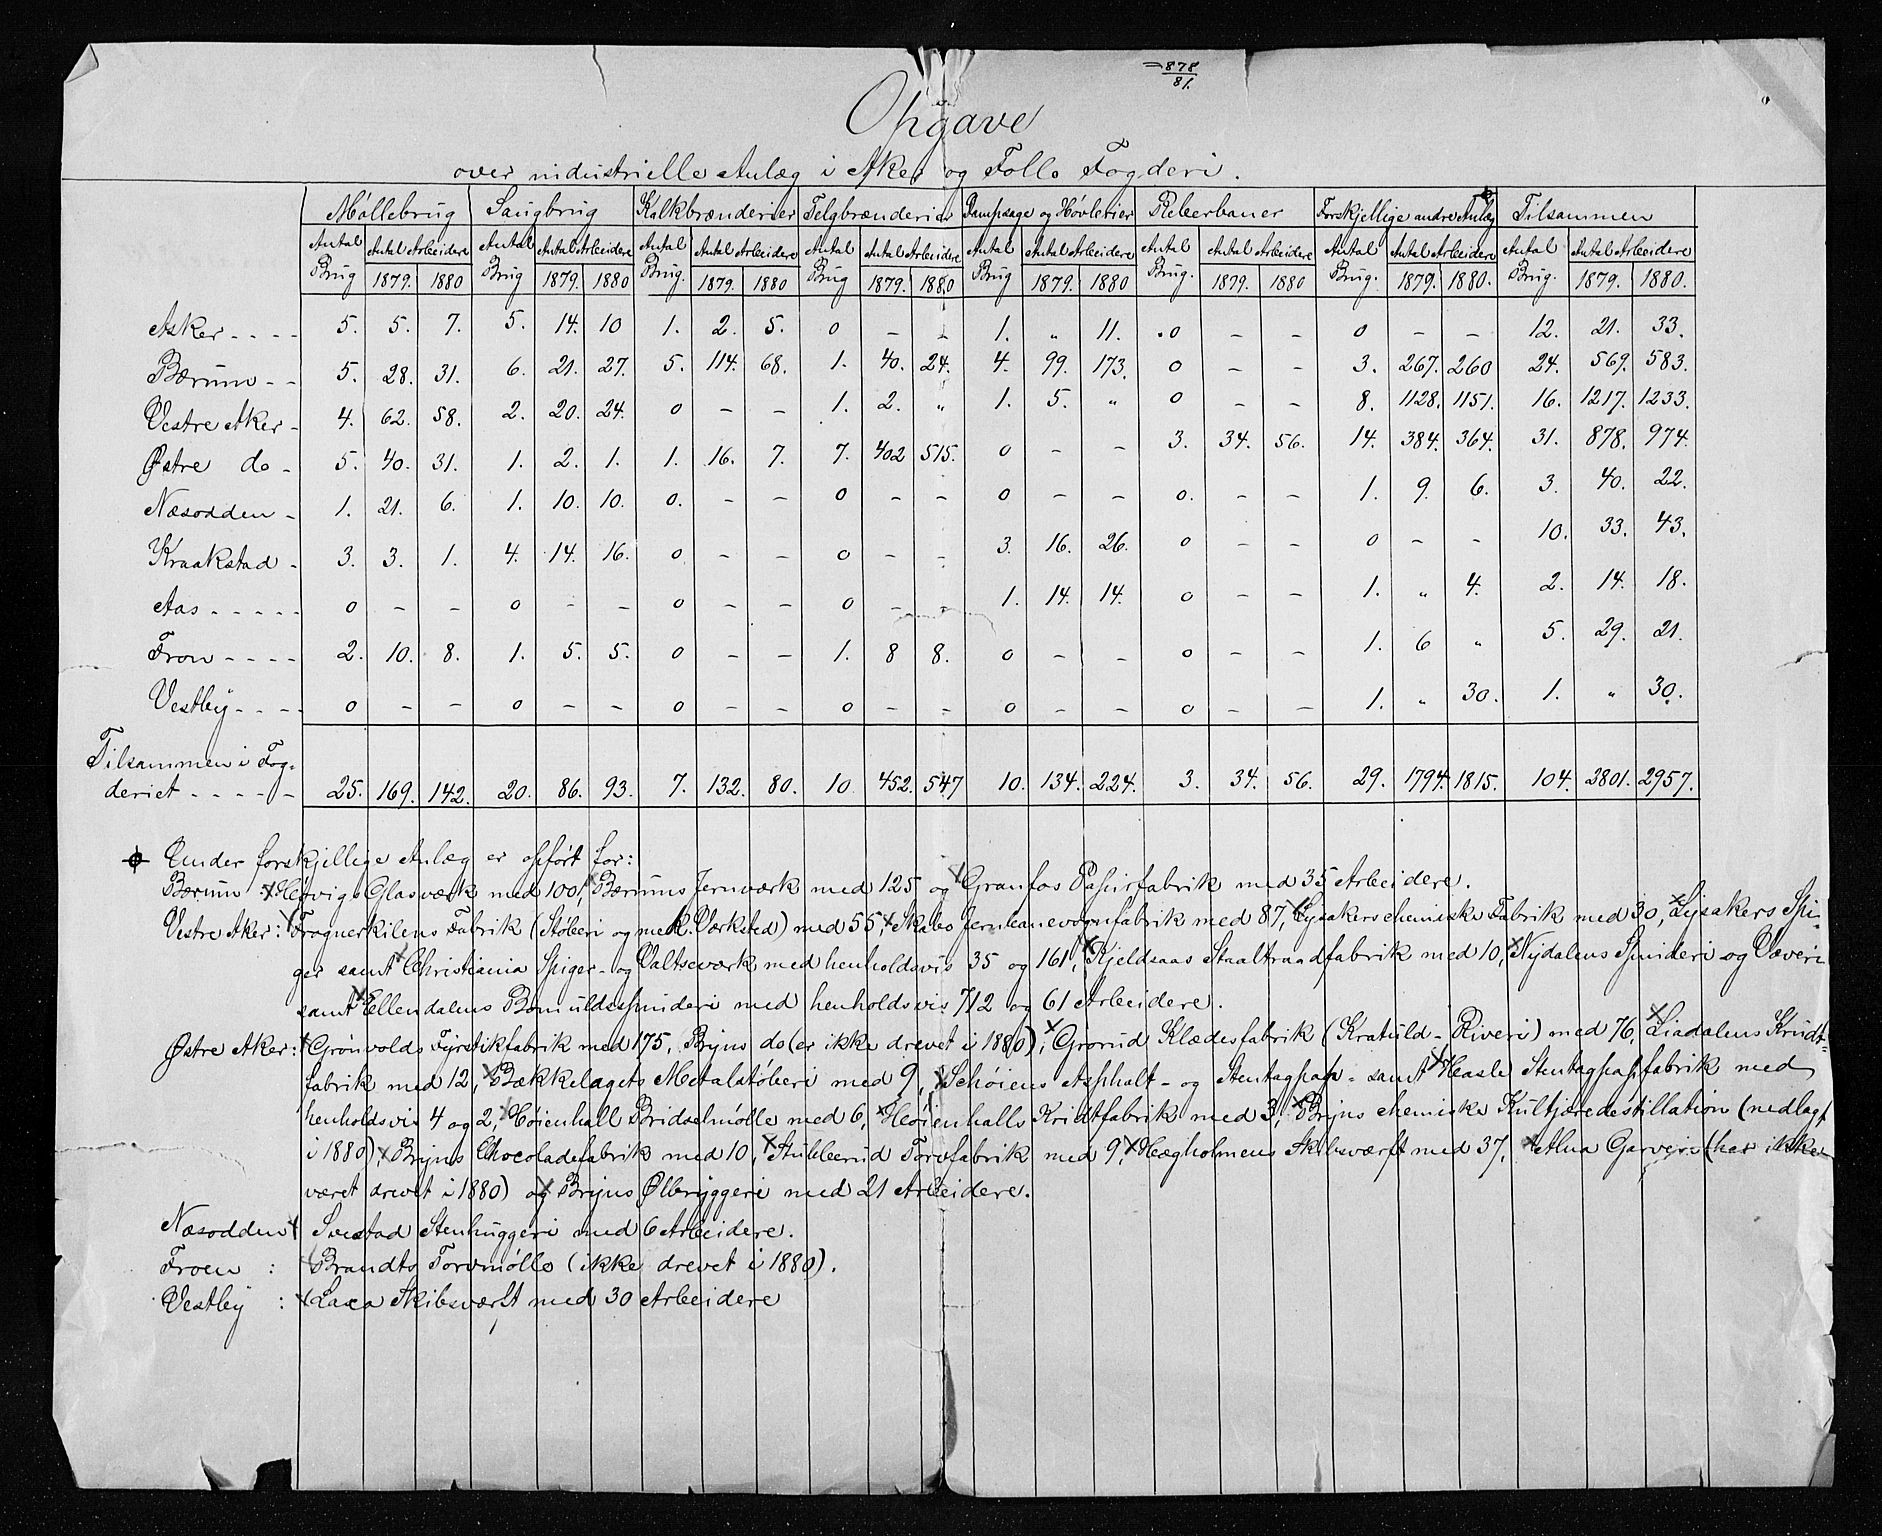 878
81.
Opgave
over industrielle Anlæg i Aker og Follo Fogderi.
Møllebrug Saugbrug Kalkbrænderier Telgbrænderier Dampsage og Høvlerier Reberbaner Forskjellige andre Anlæg Tilsammen
Antal Brug Antal Arbeidere Antal Brug Antal Arbeidere Antal Brug. Antal Arbeidere Antal Brug Antal Arbeidere Antal Brug Antal Arbeidere Antal Brug. Antal Arbeidere Antal Brug. Antal Arbeidere Antal Brug. Antal Arbeidere
1879. 1880 1879. 1880 1879. 1880 1879. 1880 1879. 1880 1879. 1880 1879. 1880. 1879. 1880.
Asker - - - - 5. 5. 7. 5. 14. 10 1. 2. 5. 0 - - 1. " 11. 0 - - 0 - - 12. 21. 33.
Bærum - - 5. 28. 31. 6. 21. 27. 5. 114. 68. 1. 40. 24. 4. 99. 173. 0 - - 3. 267. 260 24. 569. 583.
Vestre Aker - 4. 62. 58. 2. 20. 24. 0 - - 1. 2. " 1. 5. " 0 - - 8. 1128. 1151. 16. 1217. 1233.
Østre do - 5. 40. 31. 1. 2. 1. 1. 16. 7. 7. 402 515. 0 - - 3. 34. 56. 14. 384. 364. 31. 878. 974.
Næsodden - 1. 21. 6. 1. 10. 10. 0. - - 0 - - 0 - - 0. - - 1. 9. 6. 3. 40. 22.
Kraakstad - 3. 3. 1. 4. 14. 16. 0 - - 0 - - 3. 16. 26. 0 - - 0 - - 10. 33. 43.
Aas - - - - - 0 - - 0 - - 0 - - 0 - - 1. 14. 14. 0 - - 1. " 4. 2. 14. 18.
Fron - - - - 2. 10. 8. 1. 5. 5. 0 - - 1. 8 8. 0 - - 0 - - 1. 6 " 5. 29. 21.
Vestby - - - - 0 - - 0 - - 0 - - 0 - - 0 - - 0 - - 1. " 30. 1. " 30.
Tilsammen i Fog-
deriet - - - - - 25. 169. 142. 20. 86. 93. 7. 132. 80. 10. 452. 547 10. 134. 224. 3. 34. 56. 29. 1794. 1815. 104. 2801. 2957.
Under forskjellige Anlæg er opført for:
Bærum: Høvigs Glasværk med 100, Bærums Jernværk med 125 og Granfos Papirfabrik med 35 Arbeidere.
Vestre Aker: Frognerkilens Fabrik (Støberi og mek. Værksted) med 55, Skabo Jernbanevognfabrik med 87, Lysakers chemiske Fabrik med 30, Lysakers Spi-
ger samt Christiania Spiger- og Valtseværk med henholdsvis 35 og 161, Kjeldsaas Staaltraadfabrik med 10, Nydalens Spinderi og Væveri
samt Ellendalens Bomuldsspinderi med henholdsvis 712 og 61 Arbeidere.
Østre Aker: Grønvolds Fyrstikfabrik med 175, Bryns do (er ikke drevet i 1880), Grorud Klædesfabrik (Kratuld-Riveri) med 76, Liadalens Krudt-
fabrik med 12, Bækkelagets Metalstøberi med 9, Schøiens Asphalt- og Stentagpap- samt Hasle Stentagpapfabrik med
henholdsvis 4 og 2, Høienhall Bridselmølle med 6, Høienhalls Kridtfabrik med 3, Bryns chemiske Kultjæredestillation (nedlagt
i 1880), Bryns Chocoladefabrik med 10, Stubberud Torvfabrik med 9, Hægholmens Skibsværft med 37, Alna Garveri (har ikke
været drevet i 1880) og Bryns Ølbryggeri med 21 Arbeidere.
Næsodden Svestad Stenhuggeri med 6 Arbeidere.
Froen : Brandts Torvmølle (ikke drevet i 1880).
Vestby : Laxa Skibsværft med 30 Arbeidere